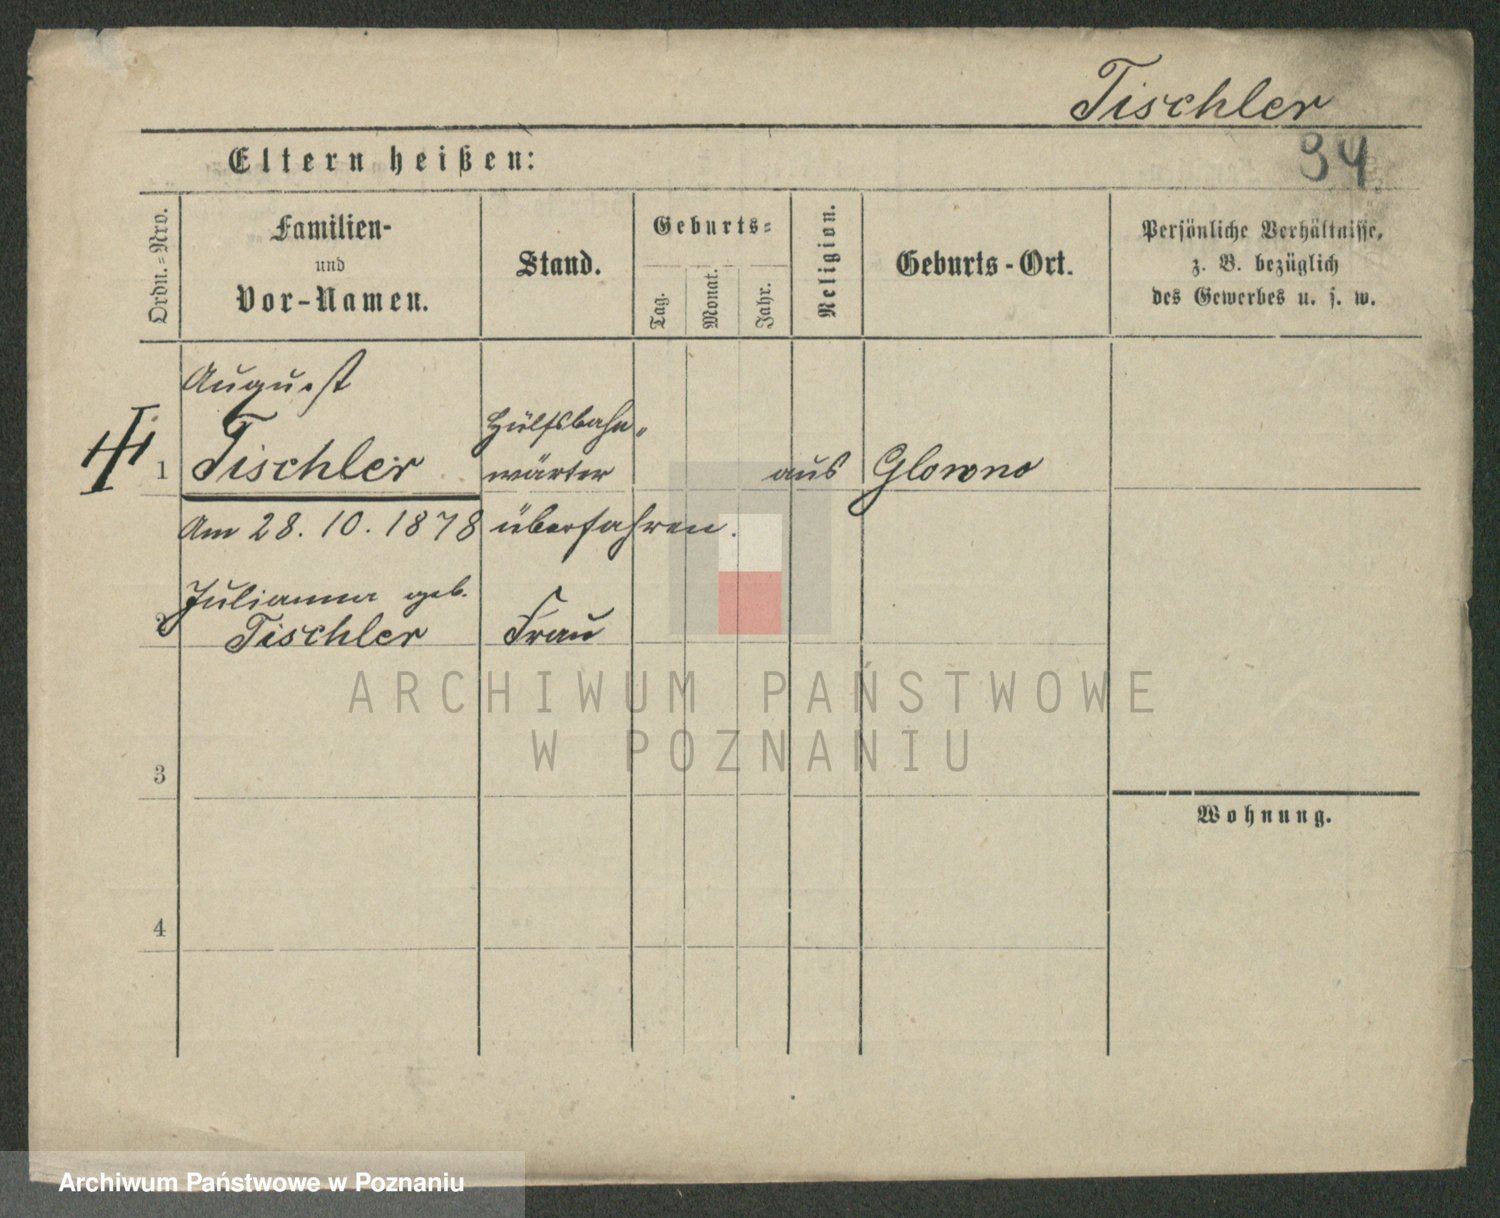 Tischler
34
Eltern heißen:
Ordn.=Nro.
Familien-
und
Vor-Namen.
Stand.
Geburts=
Tag.
Monat.
Jahr.
Religion.
Geburts-Ort.
Persönliche Verhältnisse,
z. B. bezüglich
des Gewerbes u. s. w.
August
Hülfsbahn„
1 Tischler wärter aus Glowno
Am 28. 10. 1878 überfahren.
Julianna geb.
2 Tischler Frau
ARCHIWUM PAŃSTWOWE
W POZNANIU
3
Wohnung.
4
Archiwum Państwowe w Poznaniu